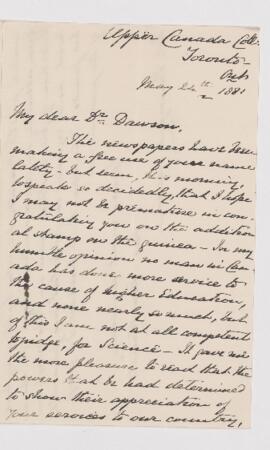 Upper Canada Coll.
Toronto-
Ont
May 24th 1881
My dear Dr. Dawson,
The newspapers have been
making a free use of your name
lately - but seem, this morning,
to speak so decidedly, that I hope
I may not be premature in con-
gratulating you on the addition
al stamp on the guinea - In my
humble opinion no man in Can-
ada has done more service to
the cause of Higher Education,
and none nearly so much, but
of this I am not at all competent
to judge, for Science - It gave me
the more pleasure to read that the
powers that be had determined
to show their appreciation of
your services to our country,